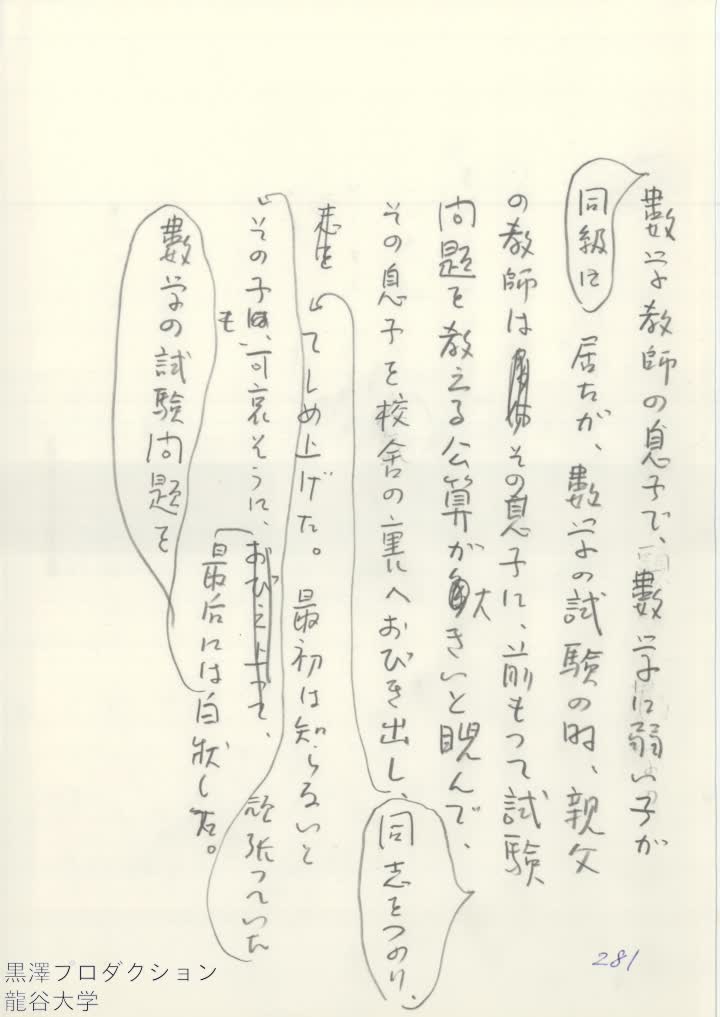 数学教師の息子で、数学に弱い子が
同級に居たが、数学の試験の時、親父
の教師はその息子に、前もって試験
問題を教える公算が大きいと睨んで、
同志をつのり、
その息子を校舎の裏へおびき出し、
てしめ上げた。最初は知らないと
頑張っていた
その子も、可哀そうに、おびえ上って、
最后には
数学の試験問題を
自状した。
281
黒澤プロダクション
龍谷大学